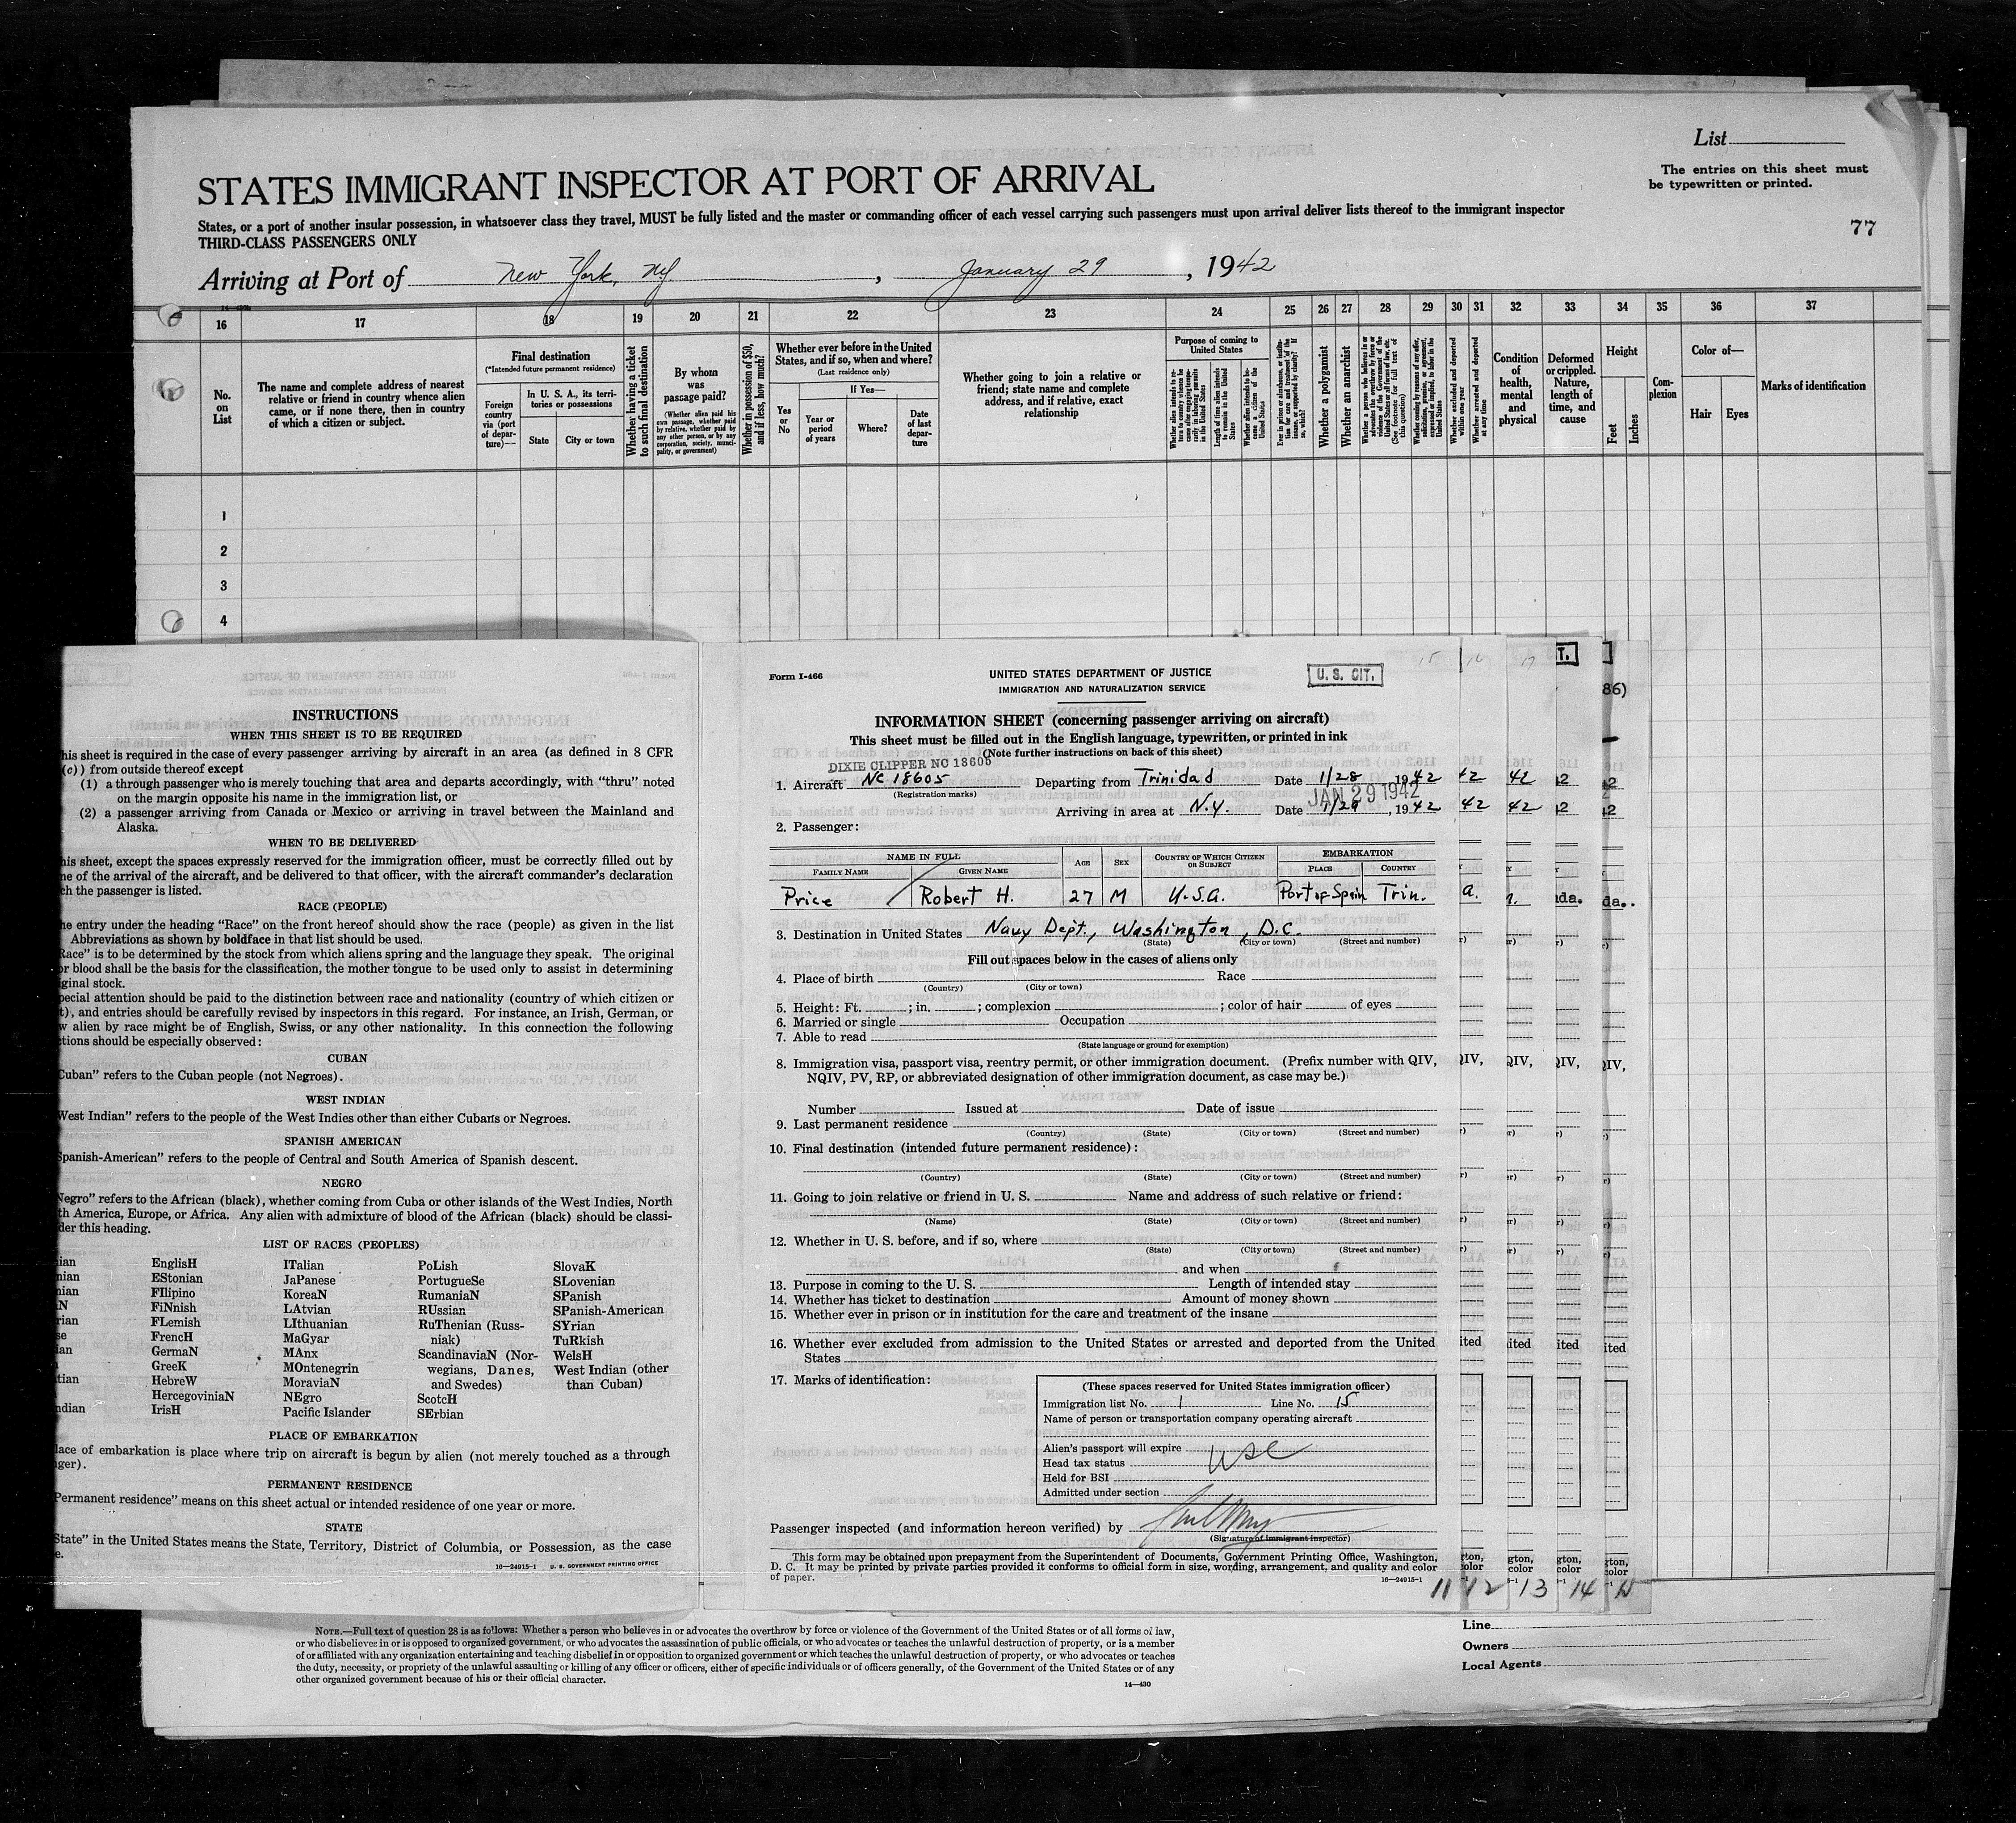 List
The entries on this sheet must
be typewritten or printed.
77
STATES IMMIGRANT INSPECTOR AT PORT OF ARRIVAL
States, or a port of another insular possession, in whatsoever class they travel, MUST be fully listed and the master or commanding officer of each vessel carrying such passengers must upon arrival deliver lists thereof to the immigrant inspector
THIRD-CLASS PASSENGERS ONLY
Arriving at Port of New York, NY, January 29, 1942
16 17 18 19 20 21 22 23 24 25 26 27 28 29 30 31 32 33 34 35 36 37
No. on List
The name and complete address of nearest
relative or friend in country whence alien
came, or if none there, then in country
of which a citizen or subject.
Final destination
(*Intended future permanent residence)
Foreign country via (port of departure)—
In U. S. A., its territories or possessions
State
City or town
Whether having a ticket to such final destination
By whom was passage paid?
(Whether alien paid his own passage, whether paid by relative, whether paid by any other person, or by any corporation, society, municipality, or government)
Whether in possession of $50, and if less, how much?
Whether ever before in the United
States, and if so, when and where?
(Last residence only)
Yes or No
If Yes—
Year or period of years
Where?
Date of last departure
Whether going to join a relative or
friend; state name and complete
address, and if relative, exact
relationship
Purpose of coming to United States
Length of time alien intends to remain in the United States
Whether alien intends to become a citizen of the United States
Whether a polygamist
Whether an anarchist
Whether excluded and deported within one year
Whether arrested and deported at any time
Condition of health, mental and physical
Deformed or crippled. Nature, length of time, and cause
Height
Feet
Inches
Complexion
Color of—
Hair
Eyes
Marks of identification
1
2
3
4
INSTRUCTIONS
WHEN THIS SHEET IS TO BE REQUIRED
his sheet is required in the case of every passenger arriving by aircraft in an area (as defined in 8 CFR
(c)) from outside thereof except
(1) a through passenger who is merely touching that area and departs accordingly, with "thru" noted
on the margin opposite his name in the immigration list, or
(2) a passenger arriving from Canada or Mexico or arriving in travel between the Mainland and
Alaska.
WHEN TO BE DELIVERED
his sheet, except the spaces expressly reserved for the immigration officer, must be correctly filled out by
ne of the arrival of the aircraft, and be delivered to that officer, with the aircraft commander's declaration
ch the passenger is listed.
RACE (PEOPLE)
he entry under the heading "Race" on the front hereof should show the race (people) as given in the list
Abbreviations as shown by boldface in that list should be used.
Race" is to be determined by the stock from which aliens spring and the language they speak. The original
or blood shall be the basis for the classification, the mother tongue to be used only to assist in determining
ginal stock.
pecial attention should be paid to the distinction between race and nationality (country of which citizen or
t), and entries should be carefully revised by inspectors in this regard. For instance, an Irish, German, or
w alien by race might be of English, Swiss, or any other nationality. In this connection the following
ctions should be especially observed:
CUBAN
Cuban" refers to the Cuban people (not Negroes).
WEST INDIAN
West Indian" refers to the people of the West Indies other than either Cubans or Negroes.
SPANISH AMERICAN
Spanish-American" refers to the people of Central and South America of Spanish descent.
NEGRO
Negro" refers to the African (black), whether coming from Cuba or other islands of the West Indies, North
th America, Europe, or Africa. Any alien with admixture of blood of the African (black) should be classi-
der this heading.
LIST OF RACES (PEOPLES)
ian EnglisH ITalian PoLish SlovaK
nian EStonian JaPanese PortugueSe SLovenian
nian FIlipino KoreaN RumaniaN SPanish
N FiNnish LAtvian RUssian SPanish-American
rian FLemish LIthuanian RuThenian (Russ- SYrian
se FrencH MaGyar niak) TuRkish
ian GermaN MAnx ScandinaviaN (Nor- WelsH
GreeK MOntenegrin wegians, Danes, West Indian (other
tian HebreW MoraviaN and Swedes) than Cuban)
HercegoviniaN NEgro ScotcH
ndian IrisH Pacific Islander SErbian
PLACE OF EMBARKATION
lace of embarkation is place where trip on aircraft is begun by alien (not merely touched as a through
ger).
PERMANENT RESIDENCE
Permanent residence" means on this sheet actual or intended residence of one year or more.
STATE
State" in the United States means the State, Territory, District of Columbia, or Possession, as the case
e.
16—24915-1 U. S. GOVERNMENT PRINTING OFFICE
Form I-466
UNITED STATES DEPARTMENT OF JUSTICE
IMMIGRATION AND NATURALIZATION SERVICE
U. S. CIT.
15 16 17
INFORMATION SHEET (concerning passenger arriving on aircraft)
This sheet must be filled out in the English language, typewritten, or printed in ink
(Note further instructions on back of this sheet)
DIXIE CLIPPER NC 18605
1. Aircraft NC 18605 Departing from Trinidad Date 1/28, 1942
(Registration marks)
JAN 29 1942
Arriving in area at N.Y. Date 1/29, 1942
2. Passenger:
NAME IN FULL
FAMILY NAME GIVEN NAME AGE SEX COUNTRY OF WHICH CITIZEN OR SUBJECT EMBARKATION PLACE COUNTRY
Price Robert H. 27 M U.S.A. Port of Spain Trin.
3. Destination in United States Navy Dept., Washington, D.C.
(State) (City or town) (Street and number)
Fill out spaces below in the cases of aliens only
4. Place of birth Race
(Country) (City or town)
5. Height: Ft. ; in. ; complexion ; color of hair of eyes
6. Married or single Occupation
7. Able to read
(State language or ground for exemption)
8. Immigration visa, passport visa, reentry permit, or other immigration document. (Prefix number with QIV,
NQIV, PV, RP, or abbreviated designation of other immigration document, as case may be.)
Number Issued at Date of issue
9. Last permanent residence
(Country) (State) (City or town) (Street and number)
10. Final destination (intended future permanent residence):
(Country) (State) (City or town) (Street and number)
11. Going to join relative or friend in U. S. Name and address of such relative or friend:
(Name) (State) (City or town) (Street and number)
12. Whether in U. S. before, and if so, where
(State) (City or town) (Street and number)
and when
13. Purpose in coming to the U. S. Length of intended stay
14. Whether has ticket to destination Amount of money shown
15. Whether ever in prison or in institution for the care and treatment of the insane
16. Whether ever excluded from admission to the United States or arrested and deported from the United
States
17. Marks of identification:
(These spaces reserved for United States immigration officer)
Immigration list No. 1 Line No. 15
Name of person or transportation company operating aircraft
Alien's passport will expire
USC
Head tax status
Held for BSI
Admitted under section
Passenger inspected (and information hereon verified) by
(Signature of immigrant inspector)
This form may be obtained upon prepayment from the Superintendent of Documents, Government Printing Office, Washington,
D. C. It may be printed by private parties provided it conforms to official form in size, wording, arrangement, and quality and color
of paper.
16—24915-1
11 12 13 14
NOTE.—Full text of question 28 is as follows: Whether a person who believes in or advocates the overthrow by force or violence of the Government of the United States or of all forms of law,
or who disbelieves in or is opposed to organized government, or who advocates the assassination of public officials, or who advocates or teaches the unlawful destruction of property, or is a member
of or affiliated with any organization entertaining and teaching disbelief in or opposition to organized government or which teaches the unlawful destruction of property, or who advocates or teaches
the duty, necessity, or propriety of the unlawful assaulting or killing of any officer or officers, either of specific individuals or of officers generally, of the Government of the United States or of any
other organized government because of his or their official character.
14—430
Line
Owners
Local Agents